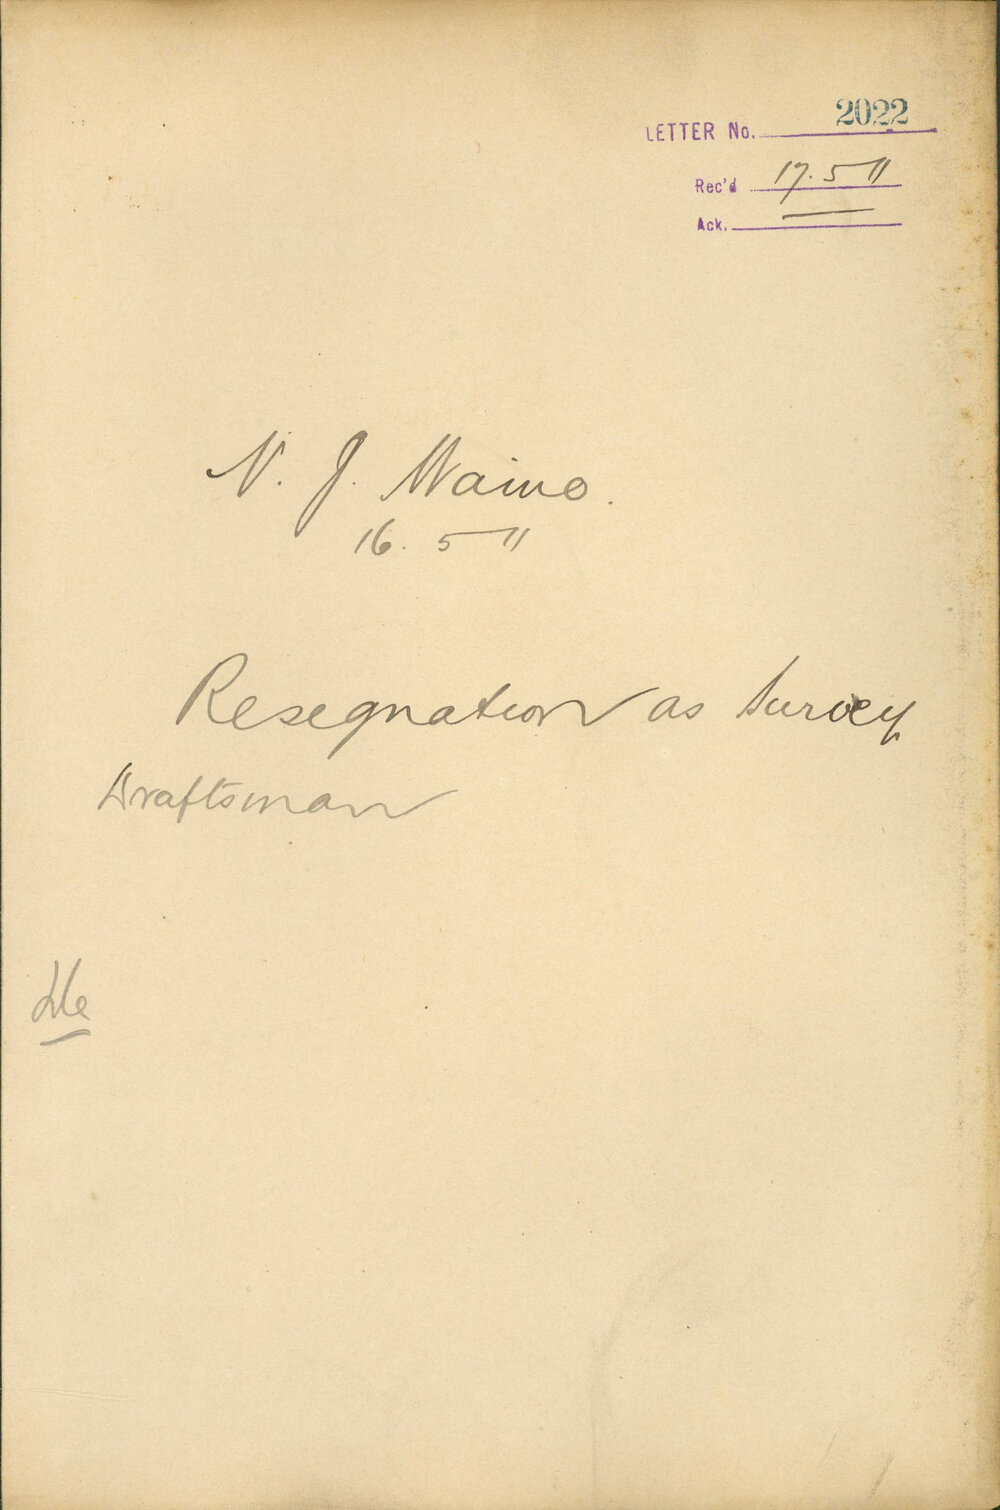 LETTER No. 2022
Rec'd 17. 5 11
Ack.
N. J. Waino.
16. 5 11
Resegnation as Survey
Draftsman